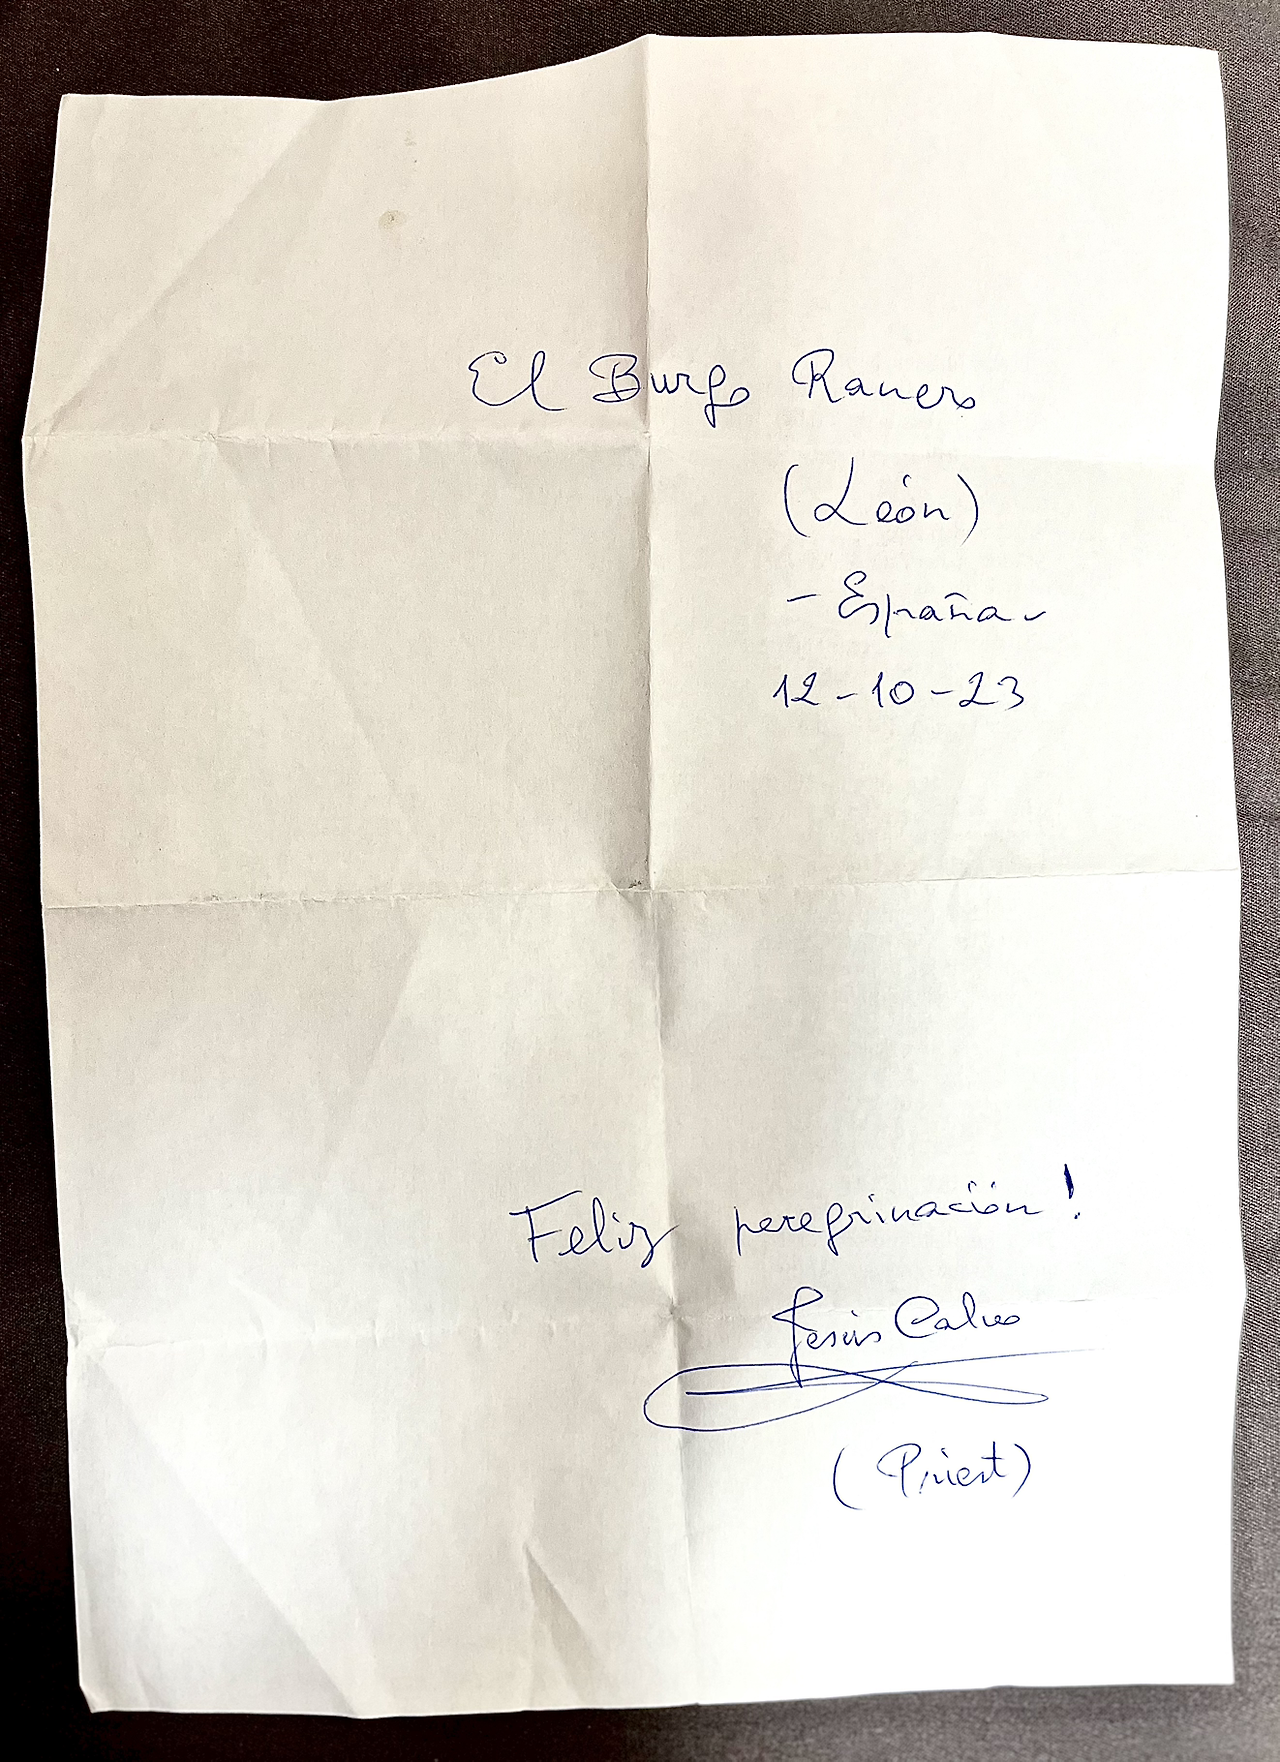 El Burgo Ranero
(León)
- España -
12-10-23
Feliz peregrinación!
Jesús Calvo
(Priest)